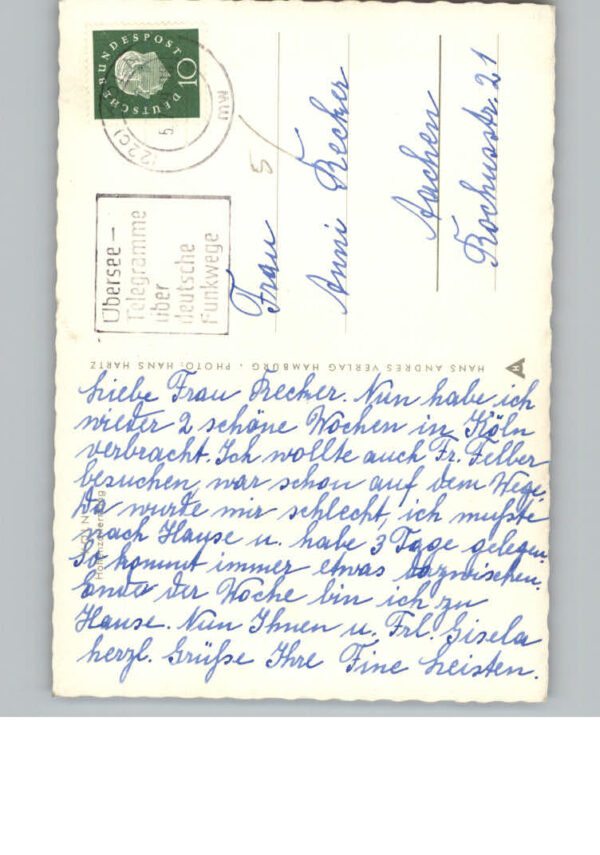 DEUTSCHE BUNDESPOST
10
(22c)
5.
mw
Übersee-
Telegramme
über
deutsche
Funkwege
5
Frau
Anni Recker
Aachen
Rochusstr. 21
HANS ANDRES VERLAG HAMBURG · PHOTO: HANS HARTZ
H
Liebe Frau Recker. Nun habe ich
wieder 2 schöne Wochen in Köln
verbracht. Ich wollte auch Fr. Felber
besuchen, war schon auf dem Wege.
Da wurde mir schlecht, ich mußte
nach Hause u. habe 3 Tage gelegen.
So kommt immer etwas dazwischen.
Ende der Woche bin ich zu
Hause. Nun Ihnen u. Frl. Gisela
herzl. Grüße Ihre Fine Leisten.